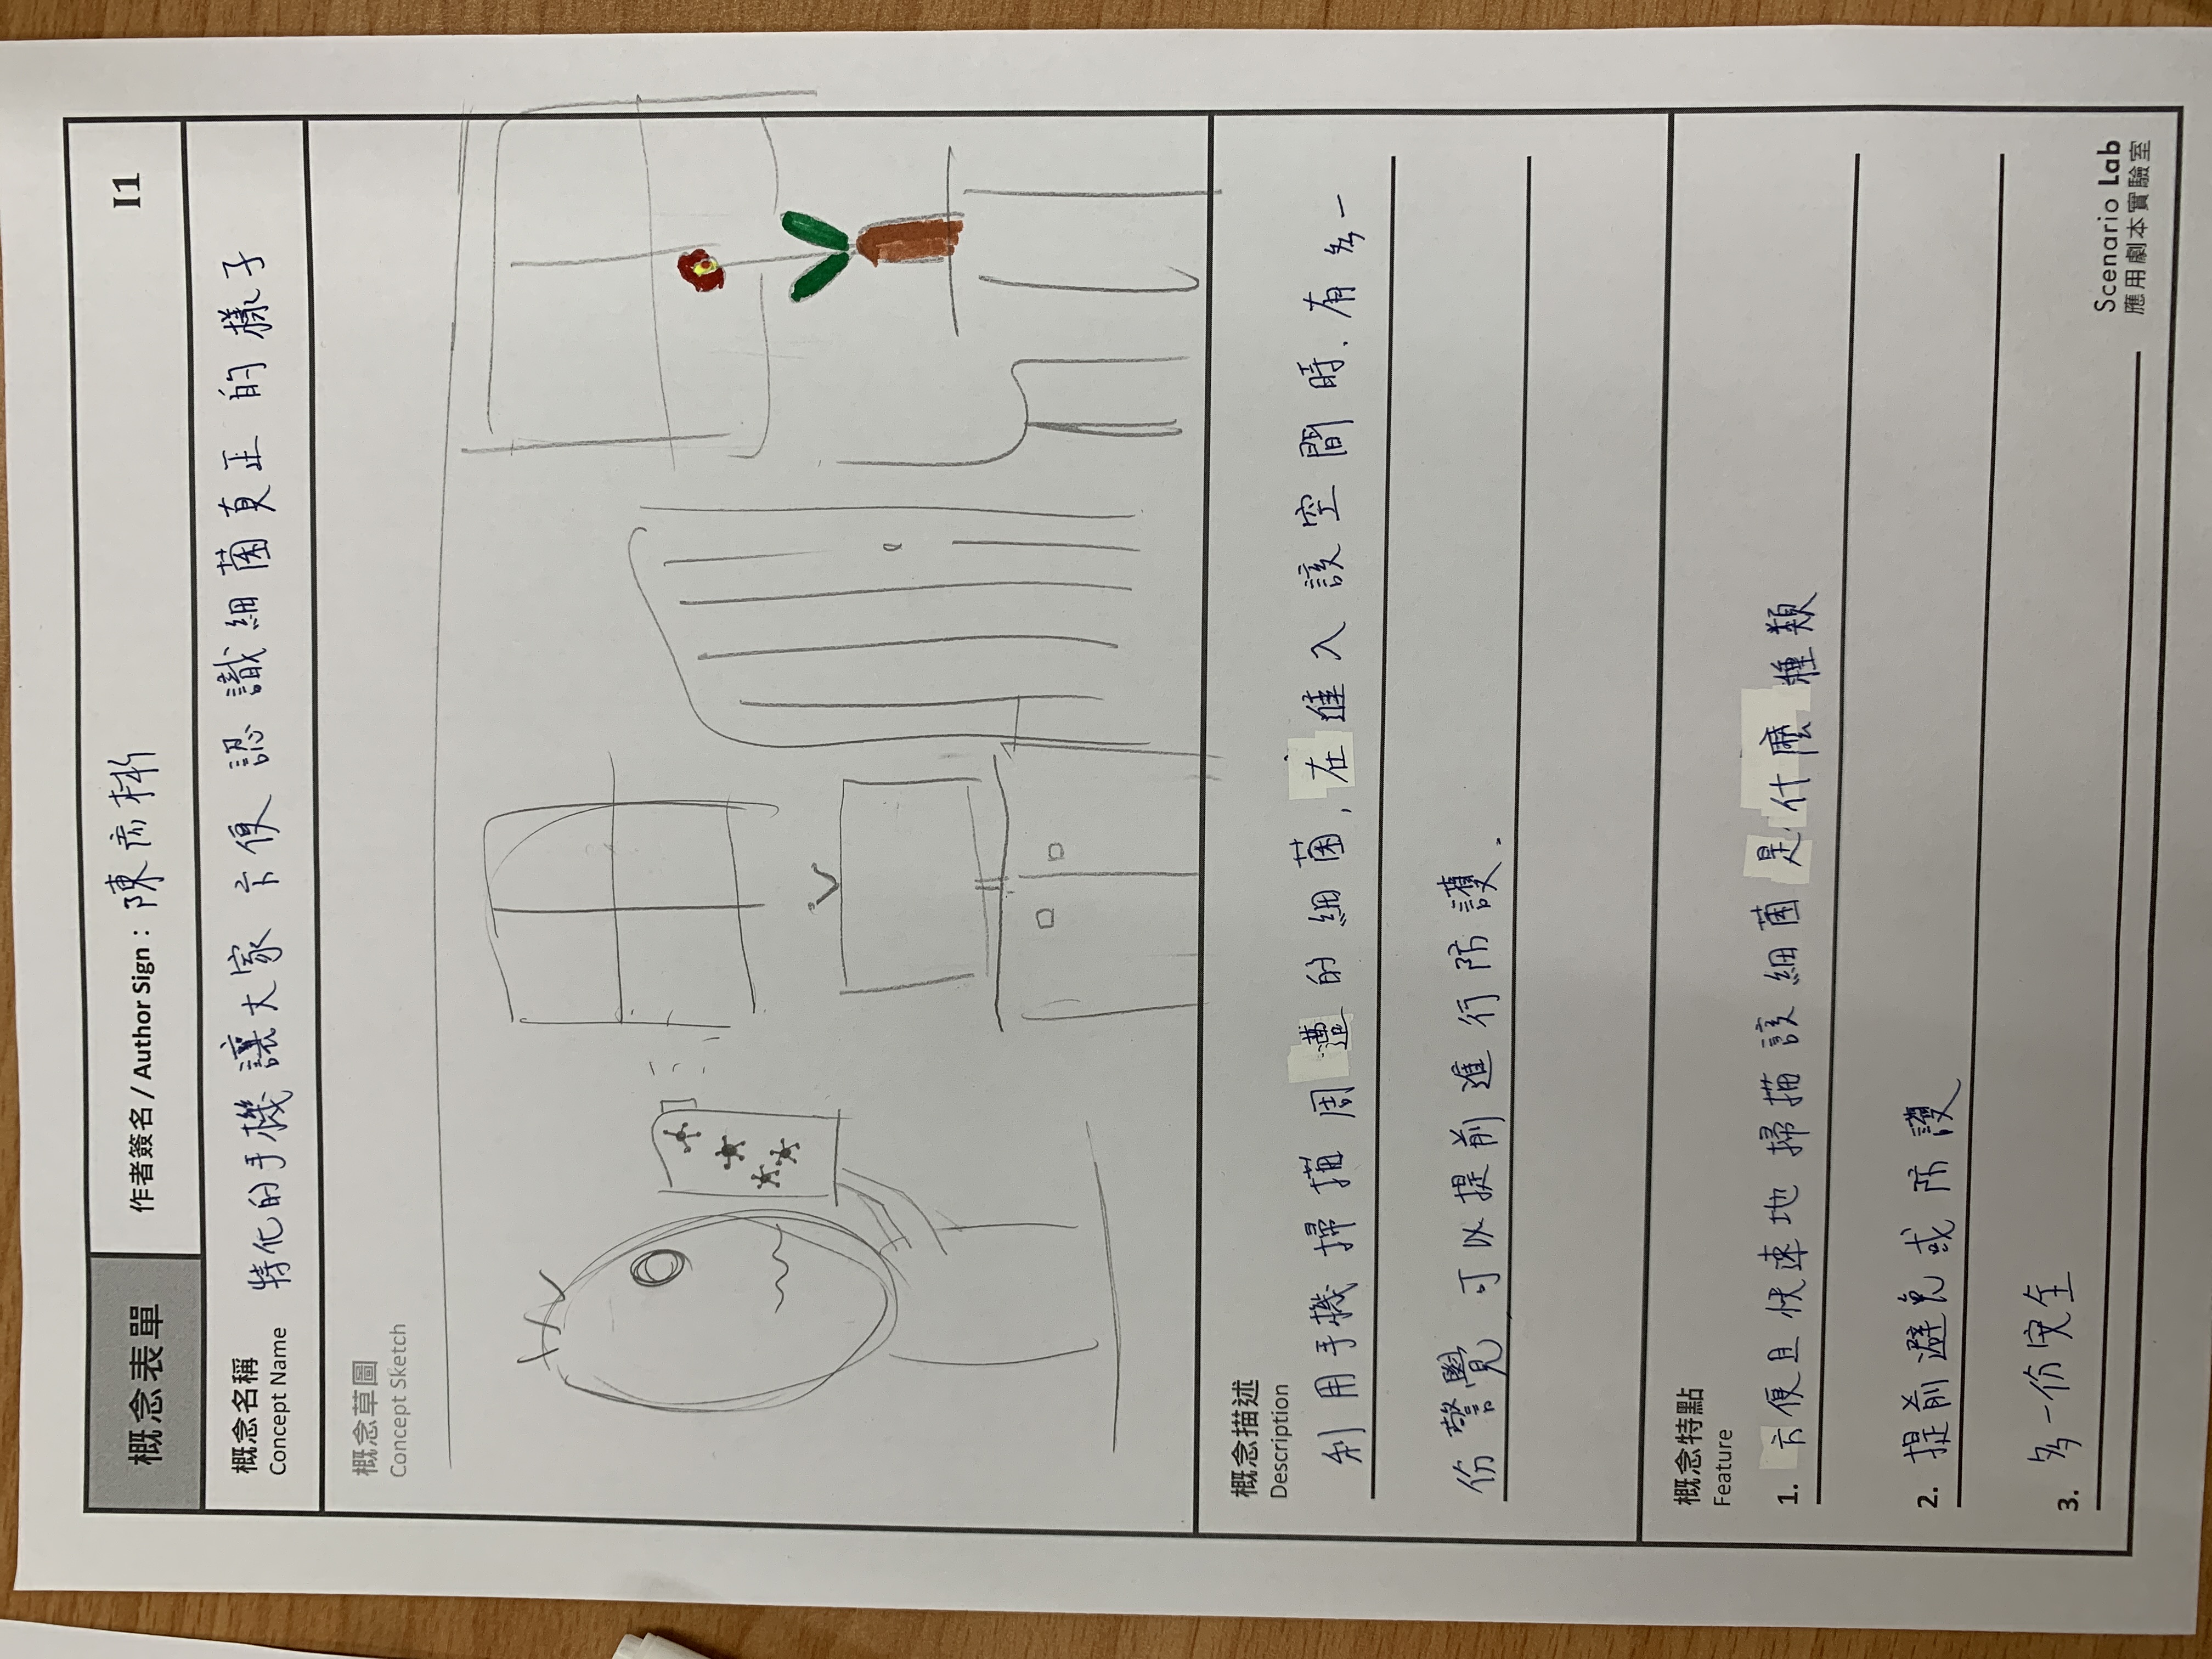 概念表單
作者簽名 / Author Sign：陳彥彬
I1
概念名稱
Concept Name
特化的手機讓大家方便認識細菌真正的樣子
概念草圖
Concept Sketch
概念描述
Description
利用手機掃描周遭的細菌,在進入該空間時.有多一
份警覺 可以提前進行防護.
概念特點
Feature
1. 方便且快速地掃描該細菌是什麼種類
2. 提前避免或防護
3. 多一份安全
Scenario Lab
應用劇本實驗室